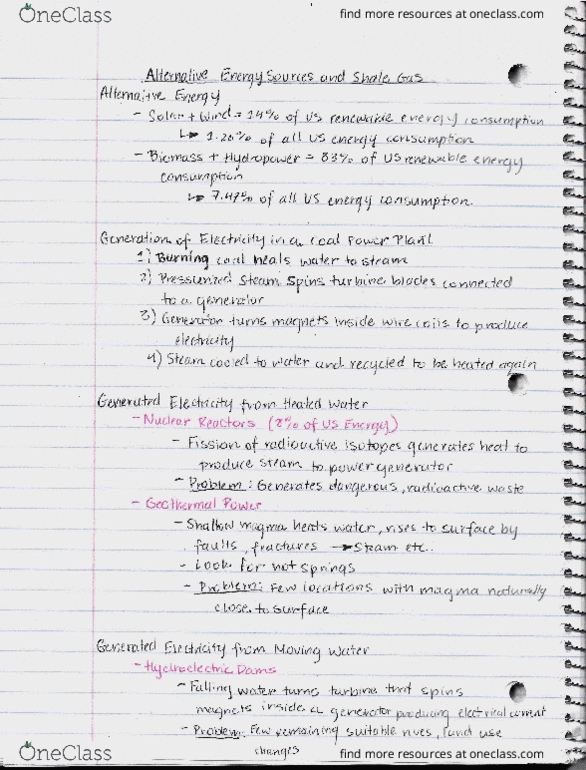 OneClass
find more resources at oneclass.com
Alternative Energy Sources and Shale Gas
Alternative Energy
- Solar + Wind = 14% of US renewable energy consumption
↳ 1.26% of all US energy consumption
- Biomass + Hydropower = 83% of US renewable energy
consumption
↳ 7.47% of all US energy consumption.
Generation of Electricity in a Coal Power Plant
1) Burning coal heats water to steam
2) Pressurized Steam Spins turbine blades connected
to a generator
3) Generator turns magnets inside wire coils to produce
electricity
4) Steam cooled to water and recycled to be heated again
Generated Electricity from Heated Water
- Nuclear Reactors (8% of US Energy)
- Fission of radioactive isotopes generates heat to
produce steam to power generator
- Problem: Generates dangerous, radioactive waste
- Geothermal Power
- Shallow magma heats water, rises to surface by
faults, fractures → Steam etc.
- Look for hot springs
- Problem: Few locations with magma naturally
close to surface
Generated Electricity from Moving Water
- Hydroelectric Dams
- Falling water turns turbine that spins
magnets inside a generator producing electrical current
- Problem: Few remaining suitable rives, land use
changes
OneClass
find more resources at oneclass.com